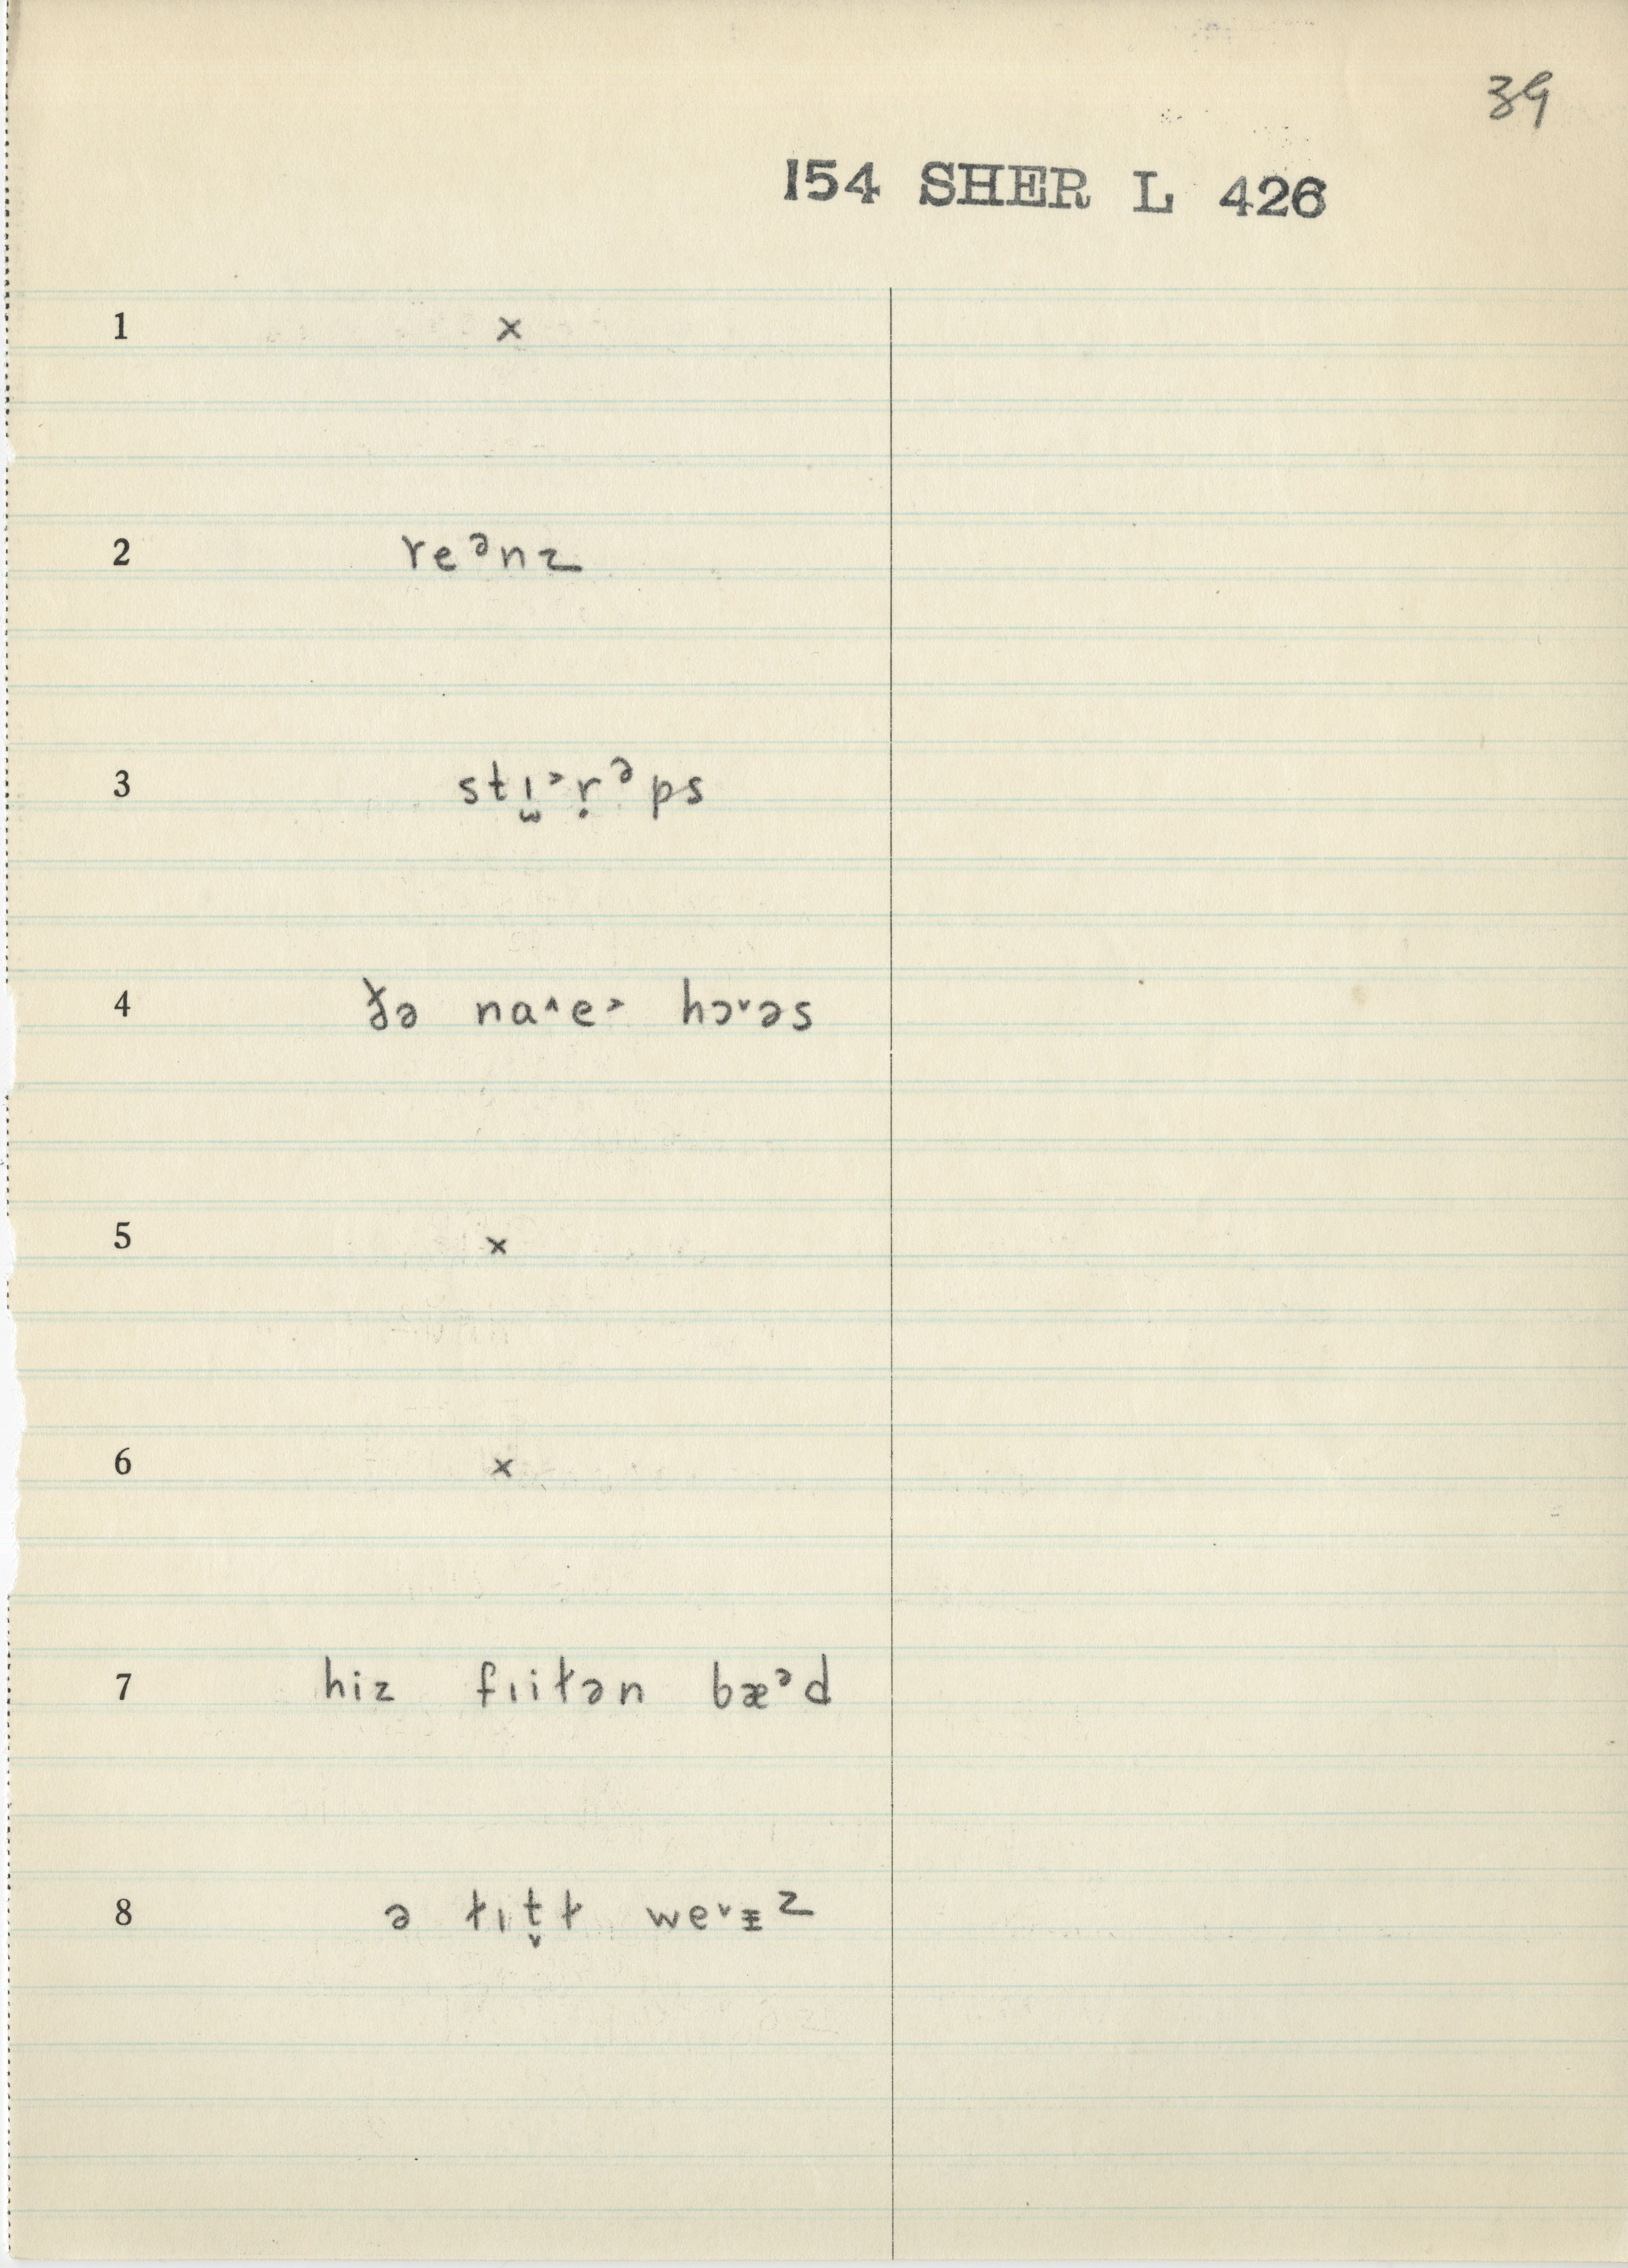 39
154 SHER L 426
1 ×
2 reᵊnz
3 stɪ̫˃ṛᵊps
4 ɣə na˄e˃ hɔ˅əs
5 ×
6 ×
7 hiz fɪiɫən bæᵊd
8 ə ɫɪt̬ɫ we˅ᵻz